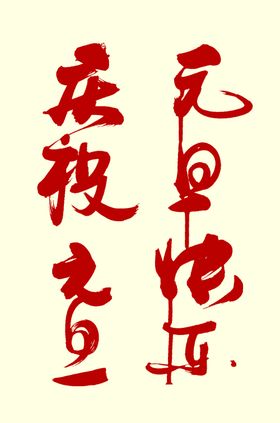 元旦快乐
庆祝元旦